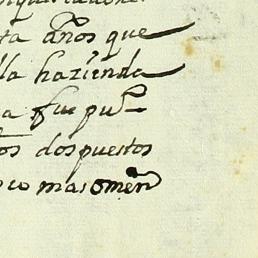 ta años que
la hazienda
a fue pu
os dos puestos
oco mas o men